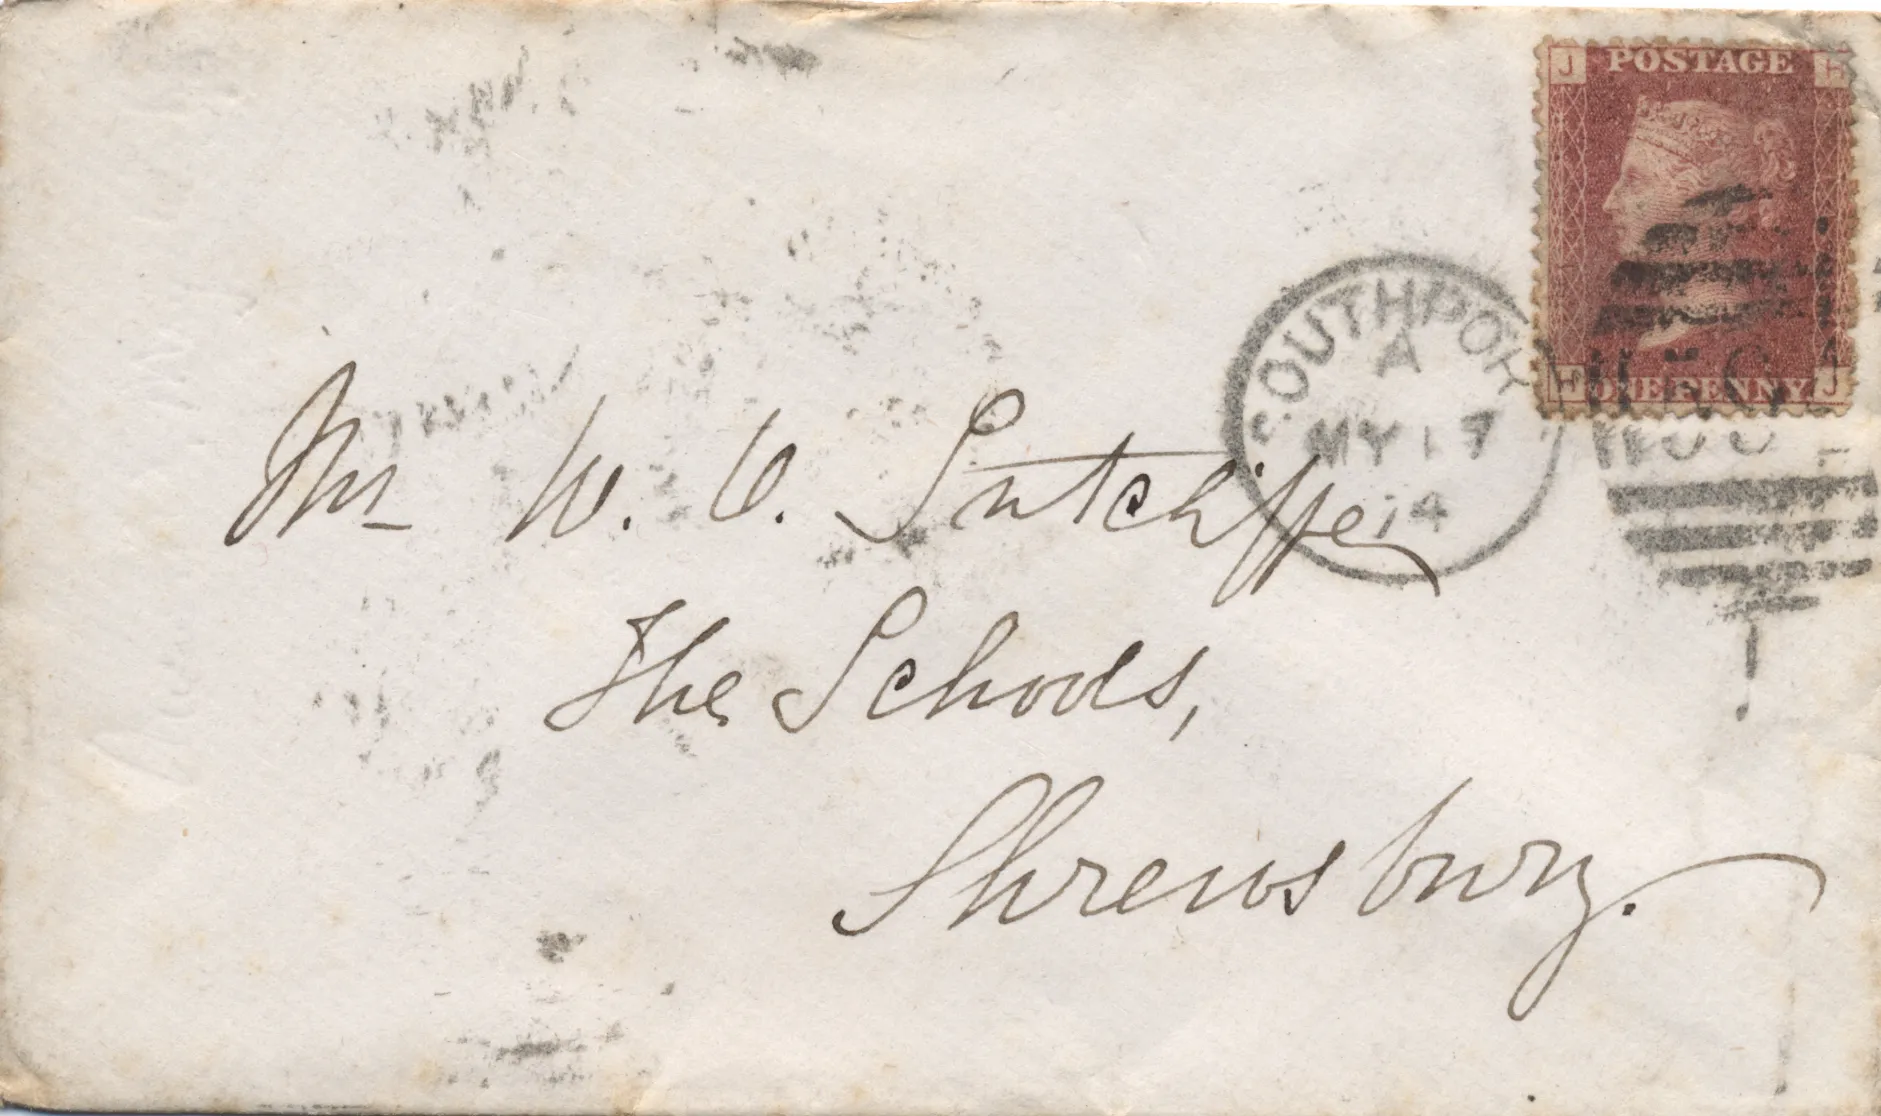 J POSTAGE H
H ONE PENNY J
SOUTHPOR
A
MY 17
74
Mr W. O. Sutcliffe
The Schools,
Shrewsbury.